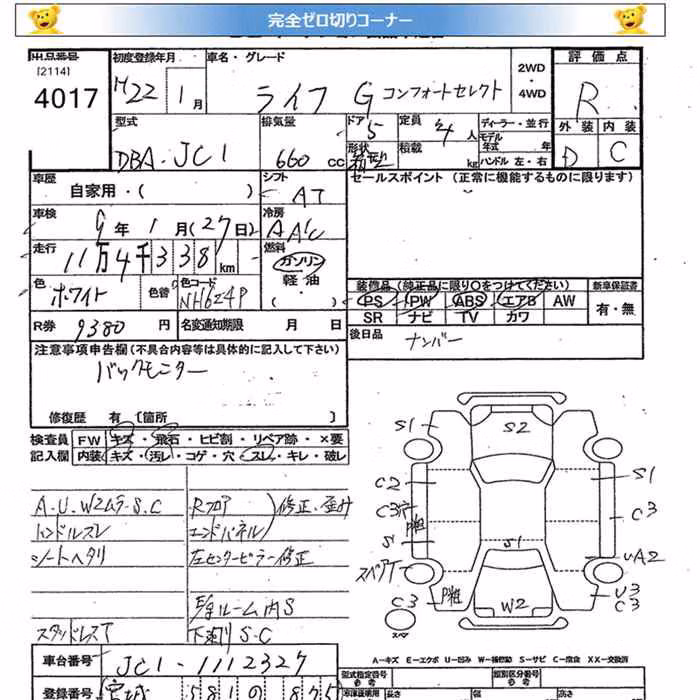 完全ゼロ切りコーナー
出品番号 初度登録年月 車名・グレード 2WD・4WD 評価点
[2114]
4017 H22 1月 ライフ G コンフォートセレクト R
型式 排気量 ドア 5 定員 4人 ディーラー・並行 外装 内装
DBA-JC1 660cc 形状 積載 kg モデル年式 年 D C
ハンドル 左・右
車歴 シフト セールスポイント (正常に機能するものに限ります)
自家用・( ) AT
車検 9年 1月(27日) 冷房 AAC
走行 11万4千338km 燃料 ガソリン
軽油
( )
色 ホワイト 色替 色コード NH624P
装備品 (純正品に限り○をつけてください) 新車保証書
PS PW ABS エアB AW 有・無
SR ナビ TV カワ
R券 9380円 名変通知期限 月 日 後日品 ナンバー
注意事項申告欄(不具合内容等は具体的に記入して下さい)
バックモニター
修復歴 有 [箇所
検査員 FW キズ・飛石・ヒビ割・リペア跡・×要
記入欄 内装 キズ・汚レ・コゲ・穴・スレ・キレ・破レ
A.U.W2ムラ.S.C Rフロア 修正・歪み
ハンドルスレ エンドパネル
シートヘタリ 左センターピラー修正
ルーム内S
スタッドレスT 下廻りS.C
S1 S2
C2 S1
C3 P粗 C3
S1 S1
スペアT UA2
C3 P粗 W2 U3
C3
スペア
A-キズ E-エクボ U-凹み W-補修跡 S-サビ C-腐食 XX-交換済
車台番号 JC1-1112327 型式指定番号 類別区分番号
参考 参考
登録番号 宮城 581 長さ 幅 高さ